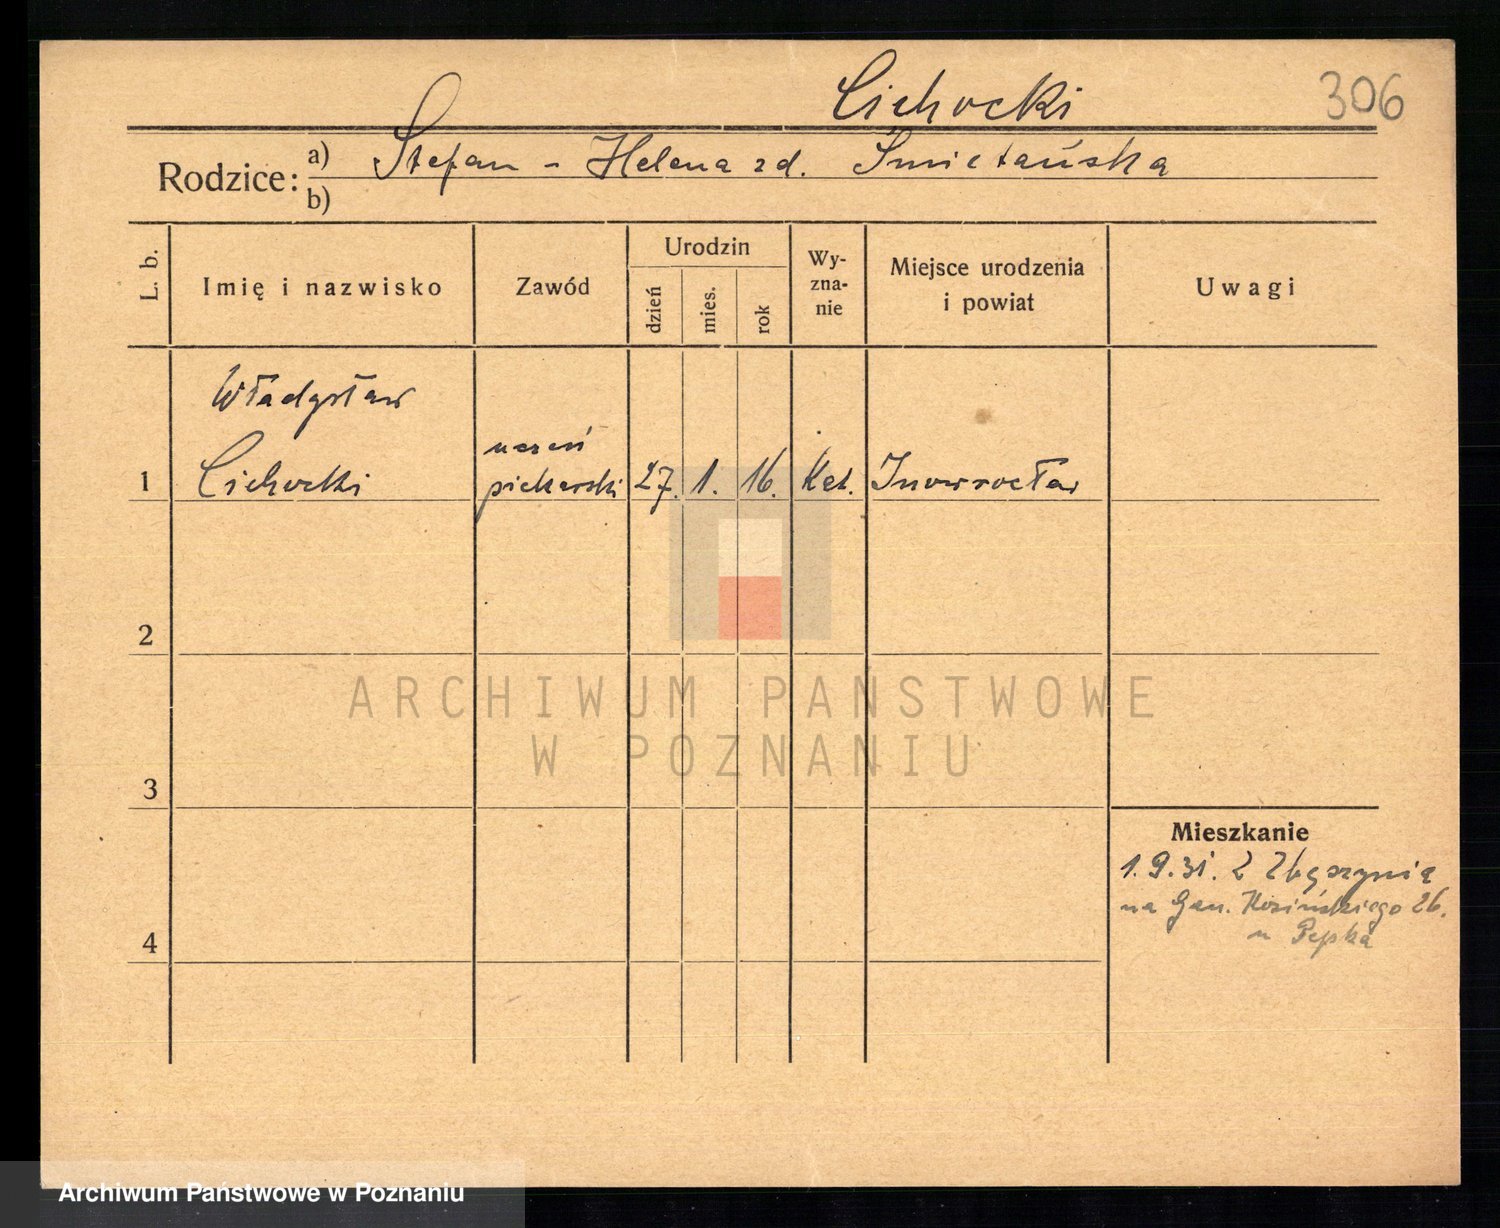 Cichocki 306
Rodzice: a) Stefan - Helena zd. Śmietańska
b)
L. b. Imię i nazwisko Zawód Urodzin dzień mies. rok Wy-zna-nie Miejsce urodzenia i powiat Uwagi
Władysław
uczeń
1 Cichocki piekarski 27. 1. 16. kat. Inowrocław
2
ARCHIWUM PAŃSTWOWE
W POZNANIU
3
Mieszkanie
1.9.31. z Zbąszynia
na Gen. Kosińskiego 26.
u Pepka
4
Archiwum Państwowe w Poznaniu